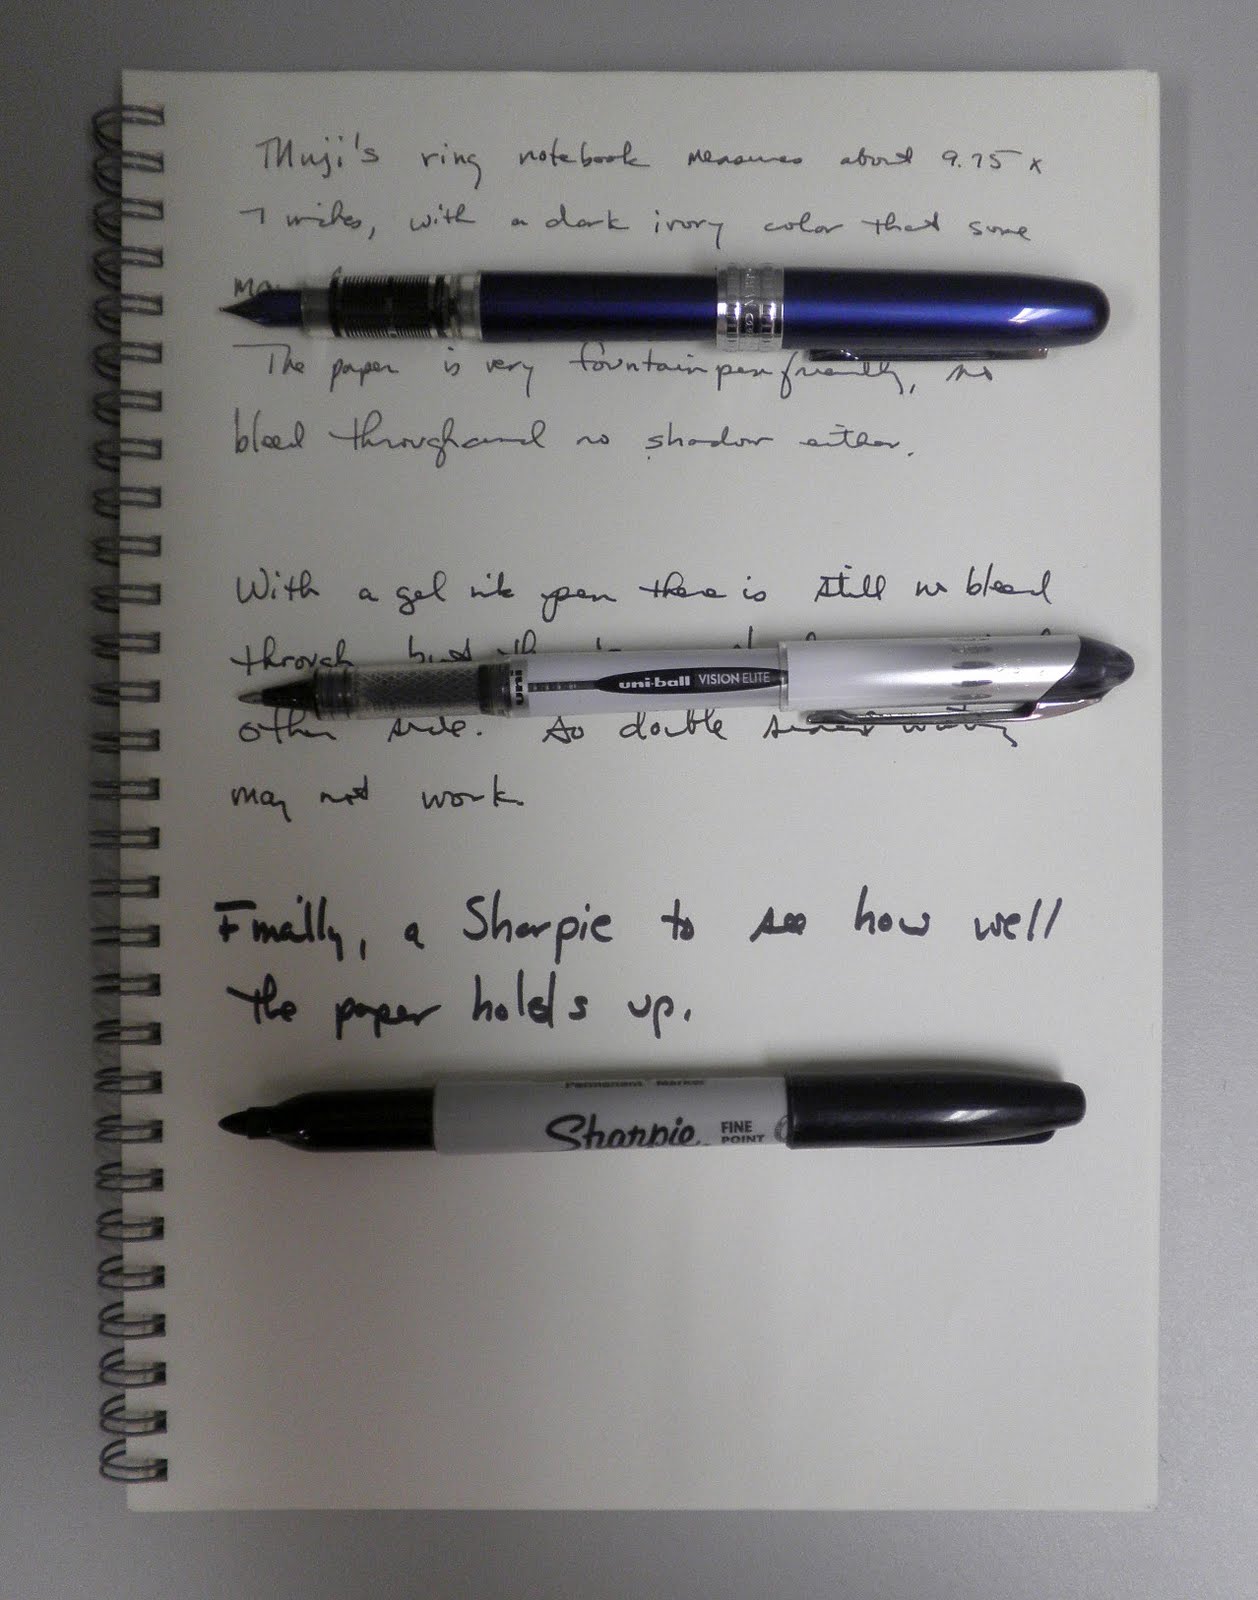 Muji's ring notebook measures about 9.75 x
7 inches, with a dark ivory color that some
The paper is very fountain pen friendly, no
bleed through and no shadow either.
With a gel ink pen there is still no bleed
through but
uni
uni-ball VISION ELITE
other side. So double sided writing
may not work.
Finally, a Sharpie to see how well
the paper holds up.
Permanent Marker
Sharpie FINE
POINT